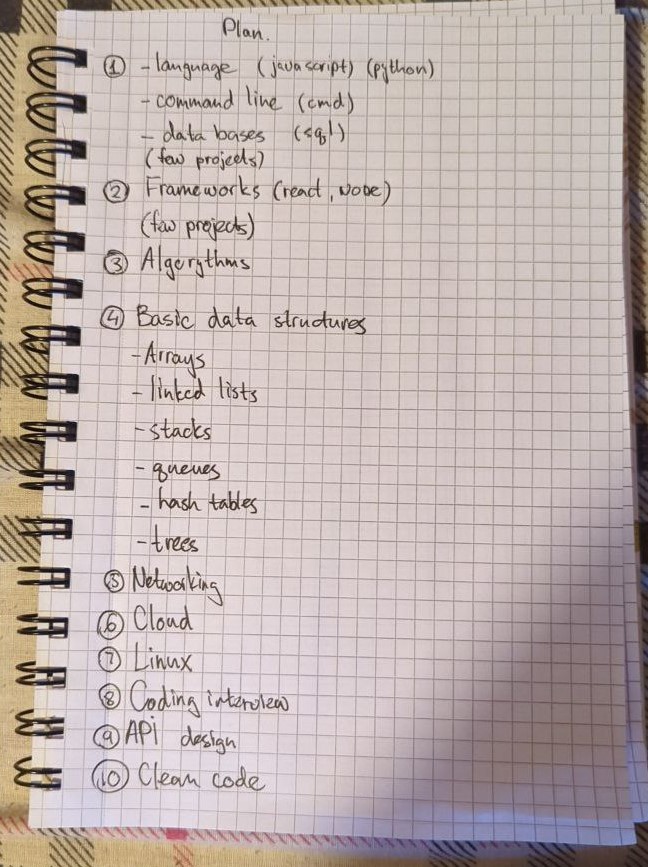 Plan.
① - language (javascript) (python)
- command line (cmd)
- data bases (sql)
(few projects)
② Frameworks (react, Node)
(few projects)
③ Algorythms
④ Basic data structures
- Arrays
- linked lists
- stacks
- queues
- hash tables
- trees
⑤ Networking
⑥ Cloud
⑦ Linux
⑧ Coding interview
⑨ API design
⑩ Clean code